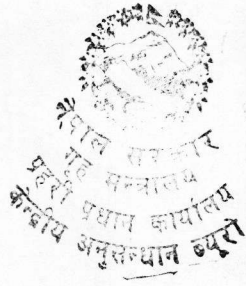 नेपाल सरकार
गृह मन्त्रालय
प्रहरी प्रधान कार्यालय
केन्द्रीय अनुसन्धान ब्यूरो